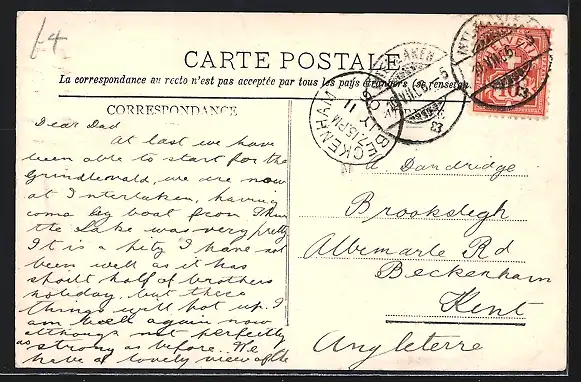 £4
CARTE POSTALE
La correspondance au recto n'est pas acceptée par tous les pays étrangers (se renseigner
CORRESPONDANCE
ADRESSE
BECKENHAM
7.15 PM
JY 11
HELVETIA
10
Dear Dad
At last we have
been able to start for the
Grindlewald, we are now
at Interlaken, having
come by boat from Thun
the Lake was very pretty
It is a pity I have not
been well as it has
spoilt half of brothers
holiday, but these
things will hot up. I
am well again now
although not perfectly
as strong as before. We
have a lovely view of the
A. Dandridge
Brooksleigh
Albemarle Rd
Beckenham
Kent
Angleterre